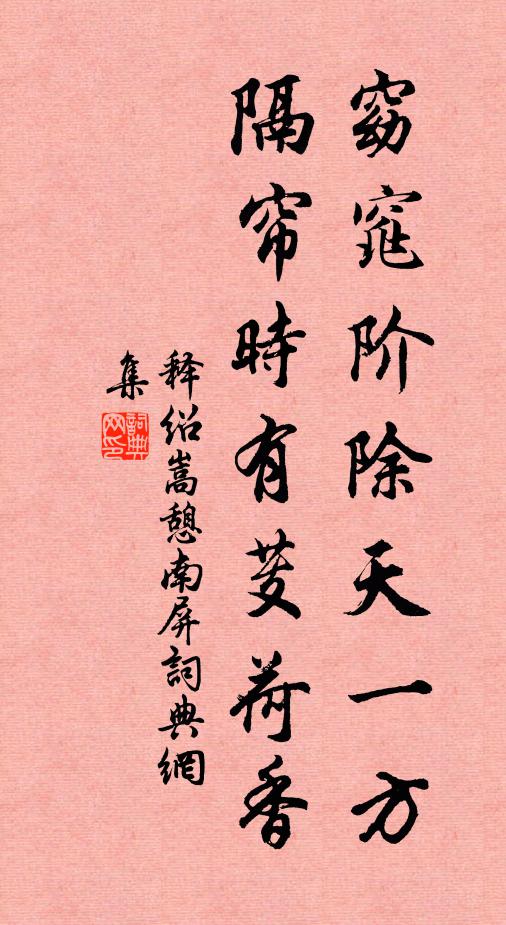 窈窕阶除天一方
隔帘時有芰荷香
释绍嵩憩南屏詞典網
集
詞典
网印